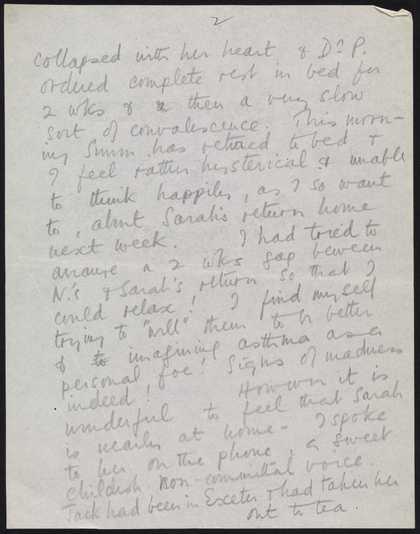 2
collapsed with her heart & Dr P.
ordered complete rest in bed for
2 wks & then a very slow
sort of convalescence. This morn-
ing Simm has retired to bed &
I feel rather hysterical & unable
to think happily, as I so want
to, about Sarah's return home
next week. I had tried to
arrange a 2 wks gap between
N.'s & Sarah's return so that I
could relax, I find myself
trying to "will" them to be better
& to imagining asthma as a
personal foe! Signs of madness
indeed! However it is
wonderful to feel that Sarah
is nearly at home - I spoke
to her on the phone, a sweet
childish non-committal voice.
Jack had been in Exeter & had taken her
out to tea.